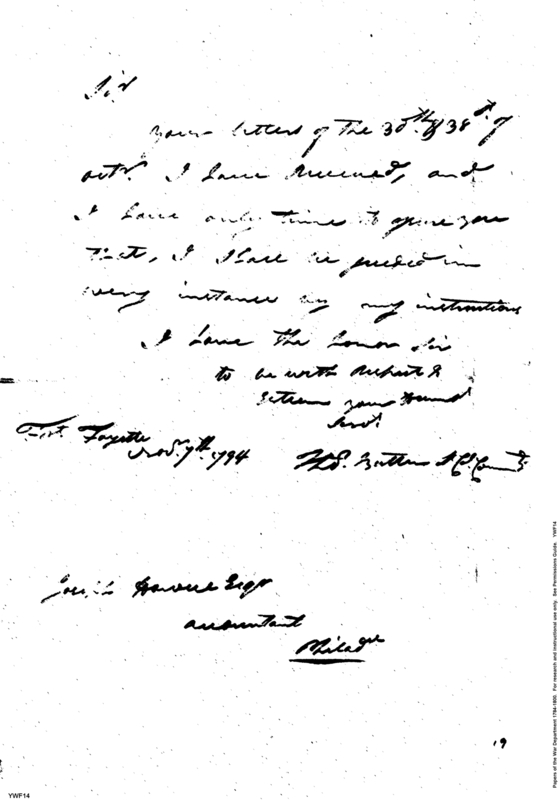 Sir
Your letters of the 30th & 38t. of
octr. I have received, and
I have only time to assure you
that, I shall be guided in
every instance by my instructions
I have the honor Sir
to be with respect &
Esteem your Humbl
Servt
Fort Fayette
Novr. 7th. 1794
Thos. Butler Lt Col. Comdt.
Joseph Howell Esqr
accountant
Philade
19
YWF14
Papers of the War Department 1784-1800. For research and instructional use only. See Permissions Guide. YWF14